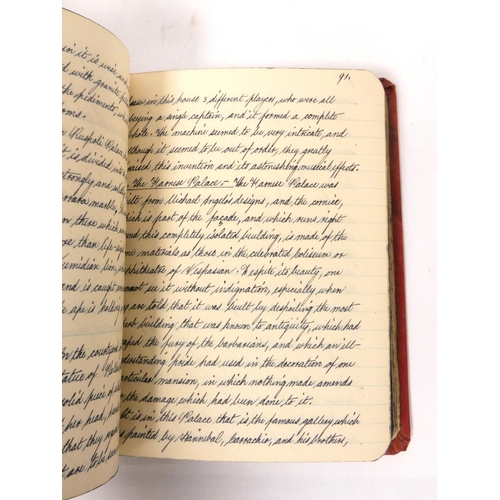 in it is wise, and
d with granite,
he pediments, wh
oms.
Ruspoli Palace
it is divided into
trongly, and wh
rrara marble,
n there which are
ore than life-siz
umidian lion,
and is caught
he ape is holding
n the courtyard
tatue of
solid piece of al
her head,
that they
t are to be see
91.
saw in this house 3 different players, who were all
beying a single captain, and it formed a complete
whole. The machine seemed to be very intricate, and
though it seemed to be out of order, they greatly
raised this invention and its astonishing musical effects.
the Farnese Palace:- The Farnese Palace was
uilt from Michail Angelos designs, and the cornice,
hich is part of the façade, and which runs right
ound this, completely isolated building, is made of the
me materials as those in the celebrated coliseum or
phitheatre of Vespasan. Despite its beauty, one
nnot see it without indignation, especially, when
are told that it was built by despoiling the most
perb building, that was known to antiquity, which had
caped the fury of the barbarians, and which an ill-
nderstanding pride had used in the decoration of one
rticular mansion, in which nothing made amends
the damage which had been done to it.
It is in this Palace that is the famous gallery, which
s painted by Hannibal, Carrachio, and his brothers,